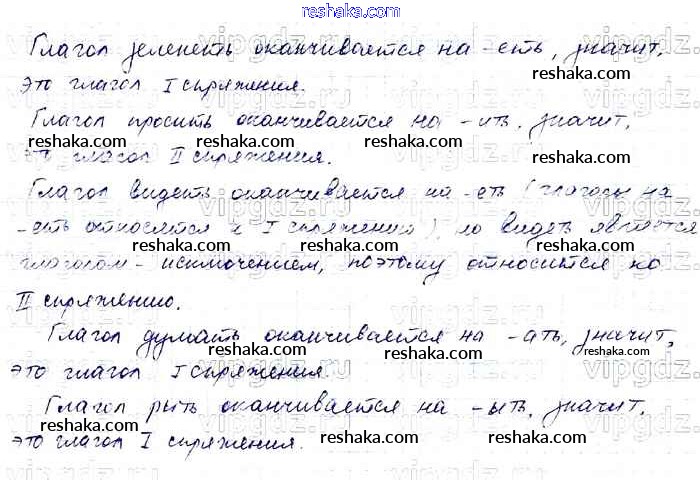 reshaka.com
Глагол зеленеть оканчивается на -еть, значит,
reshaka.com reshaka.com
это глагол I спряжения.
Глагол просить оканчивается на -ить, значит,
reshaka.com reshaka.com reshaka.com
это глагол II спряжения.
Глагол видеть оканчивается на -еть (глаголы на
-еть относятся к I спряжению), но видеть является
reshaka.com reshaka.com reshaka.com
глаголом-исключением, поэтому относится ко
II спряжению.
reshaka.com reshaka.com reshaka.com
Глагол думать оканчивается на -ать, значит,
reshaka.com
это глагол I спряжения.
reshaka.com reshaka.com
Глагол рыть оканчивается на -ыть, значит,
это глагол I спряжения.
reshaka.com reshaka.com reshaka.com